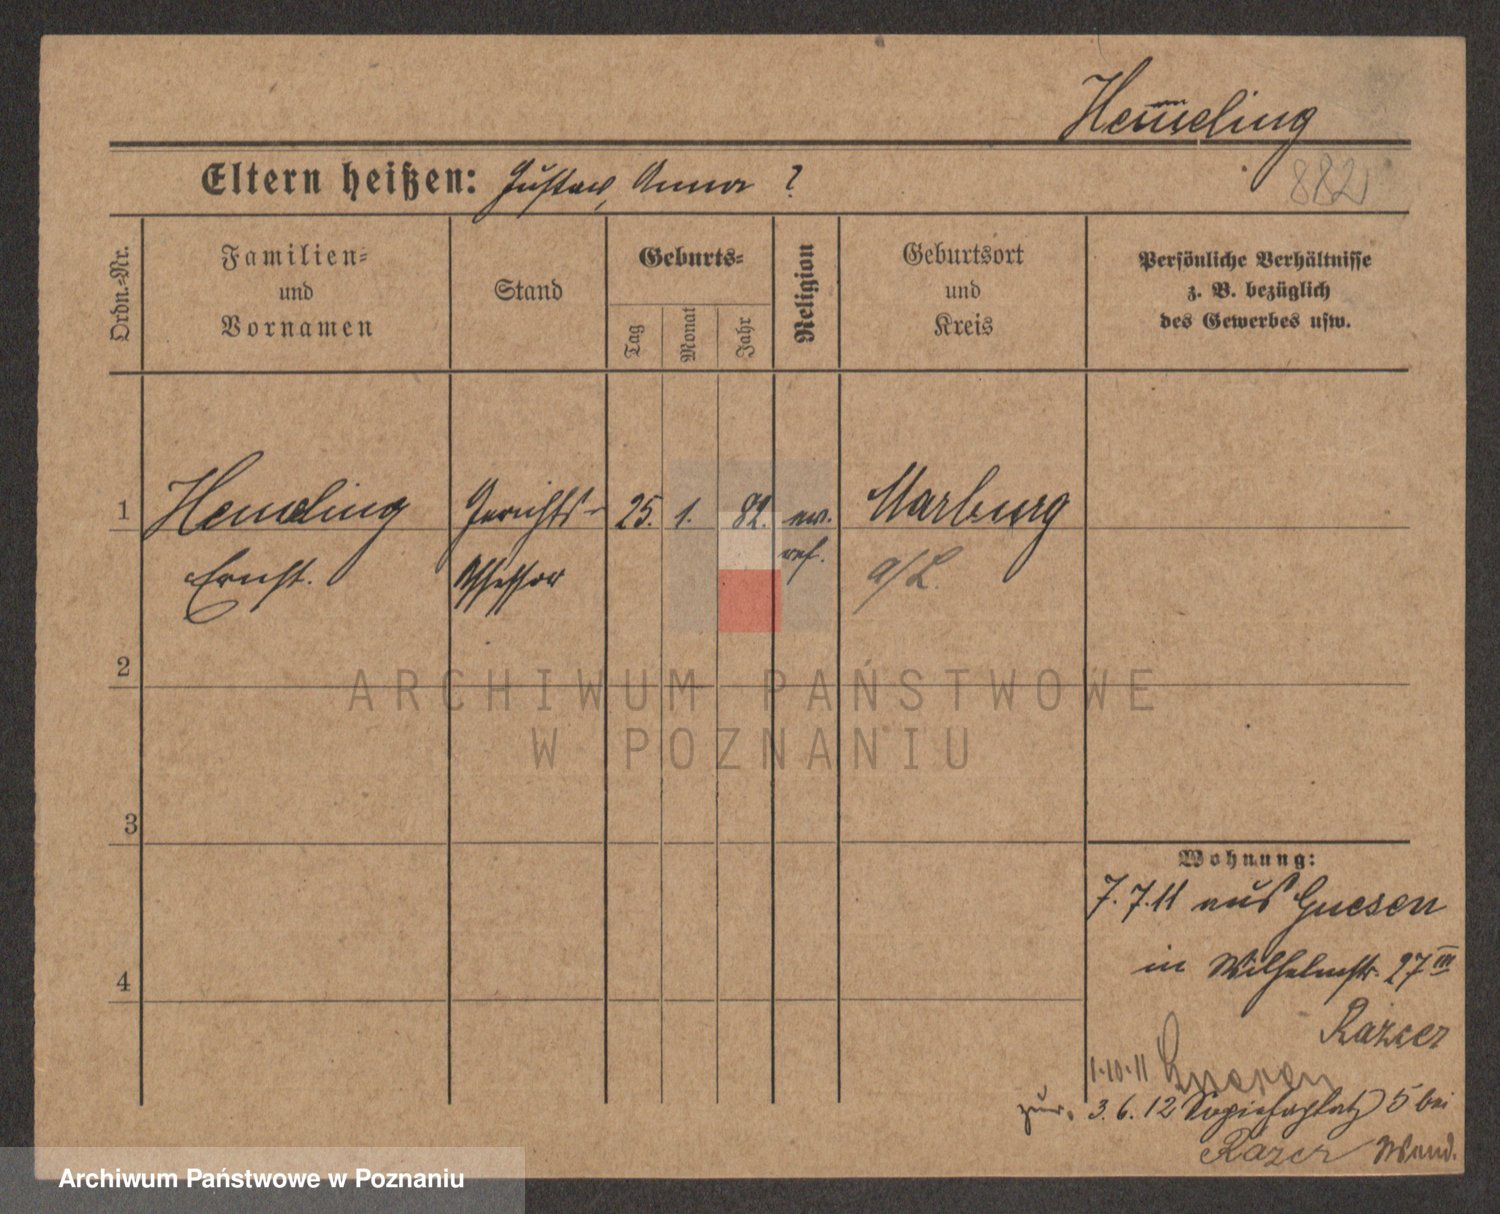 Hem̅eling
882
Eltern heißen: Gustav, Anna ?
Ordn.-Nr.
Familien-
und
Vornamen
Stand
Geburts-
Tag
Monat
Jahr
Religion
Geburtsort
und
Kreis
Persönliche Verhältnisse
z. B. bezüglich
des Gewerbes usw.
1
Hemeling
Ernst.
Gerichts-
Assessor
25.
1.
82.
ev.
ref.
Marburg
a/L.
2
3
4
ARCHIWUM PAŃSTWOWE
W POZNANIU
Wohnung:
7.7.11 aus Gnesen
in Wilhelmstr. 27 III
1.10.11 Gnesen
zur. 3.6.12 Sapiehaplatz 5 bei
Razer
Archiwum Państwowe w Poznaniu